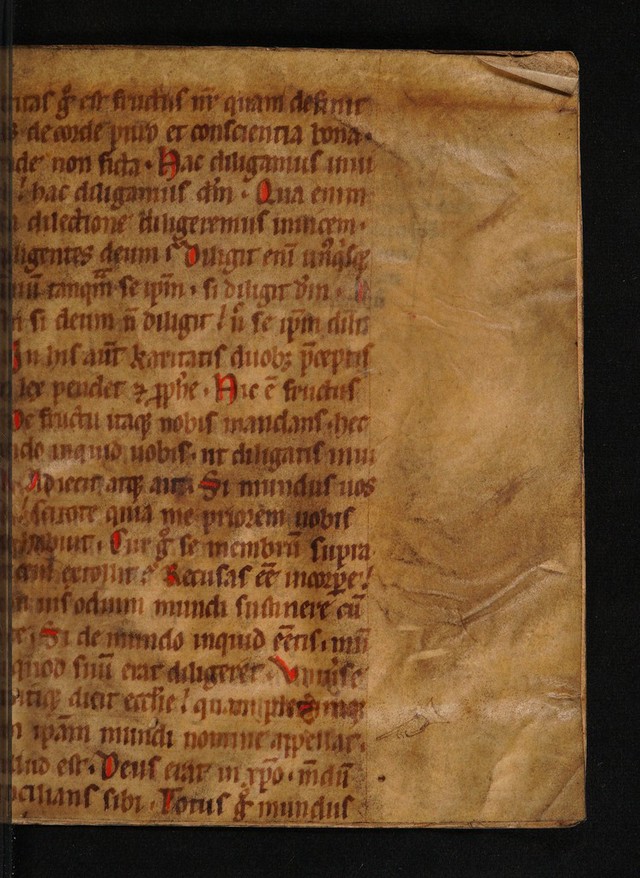 ritas g̅ est fructus nr̅ quam definit
de corde puro et conscientia bona.
non ficta. Hac diligamus inui
hac diligamus dm̅. Qua enim
dilectione diligeremus inuicem.
ligentes deum? Diligit eni̅ un̅q̅sq̅
tanqm̅ se ip̅m. si diligit dm̅.
si deum n̅ diligit / n̅ se ip̅m dili
In his aut̅ karitatis duob; p̅ceptis
lex pendet ⁊ p̅ph̅e. Hic e̅ fructus
De fructu itaq̅ nobis mandans. hec
ndo inquid uobis. ut diligatis inui
Adiecit atq̅ ait. Si mundus uos
scitote quia me priorem uobis
habuit. Cur g̅ se membru̅ supra
extollit? Recusas ee̅ in corp̅e /
uis odium mundi sustinere cu̅
Si de mundo inquid ee̅tis. mu̅
quod suu̅ erat diligeret. Vniu̅se
utiq̅ dicit eccl̅ie /
ip̅am mundi nomine appellat.
illud est. Deus erat in xp̅o. mu̅du̅
ncilians sibi. Totus g̅ mundus